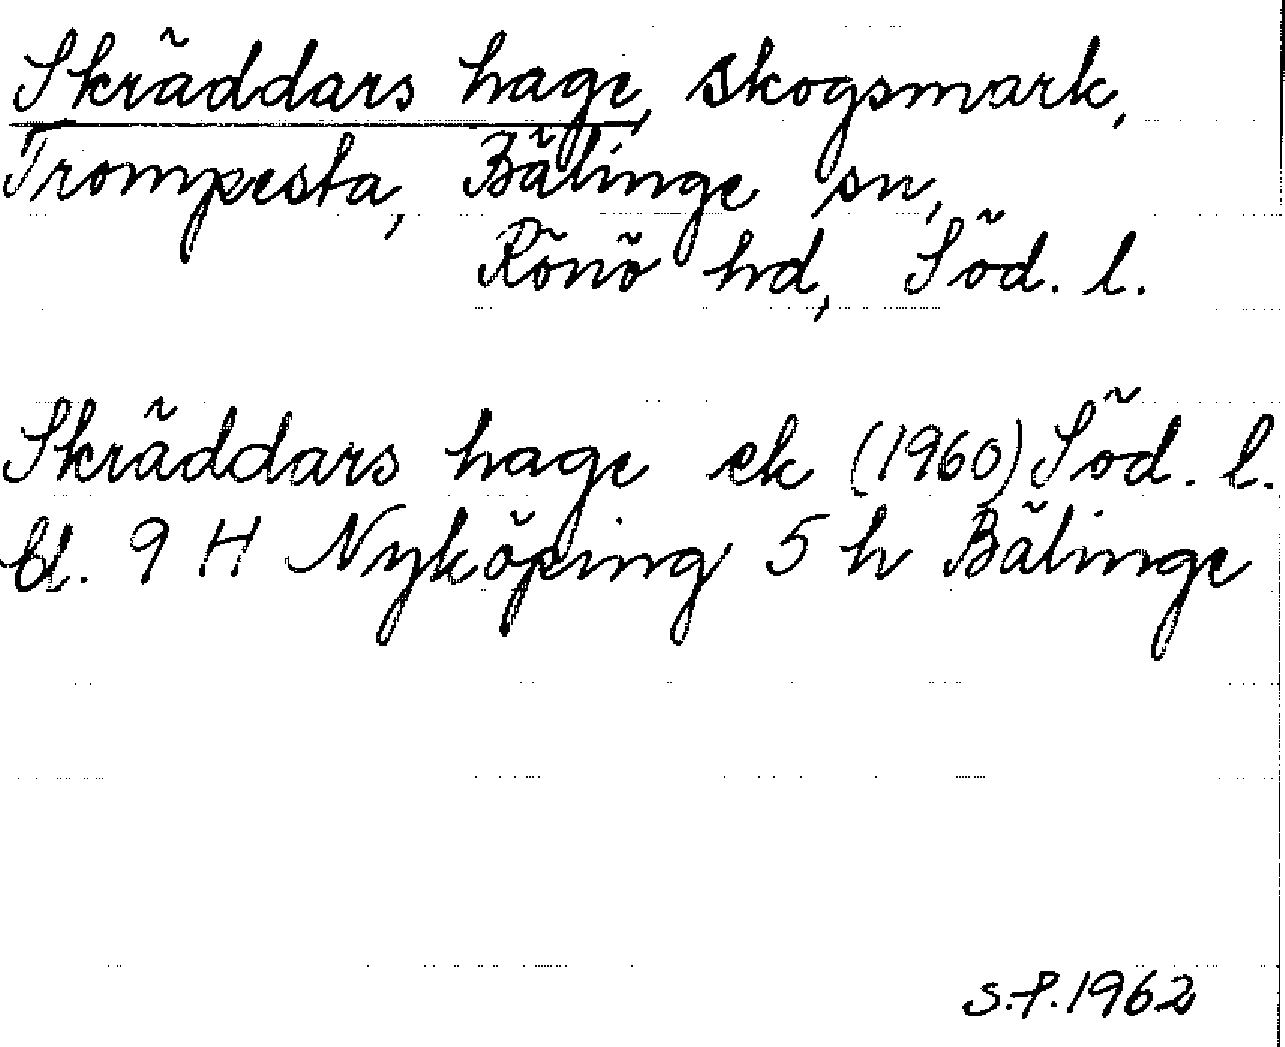 Skräddars hage, skogsmark,
Trompesta, Bälinge sn,
Rönö hd, Söd. l.
Skräddars hage ek (1960) Söd. l.
bl. 9 H Nyköping 5 h Bälinge
S.P. 1962